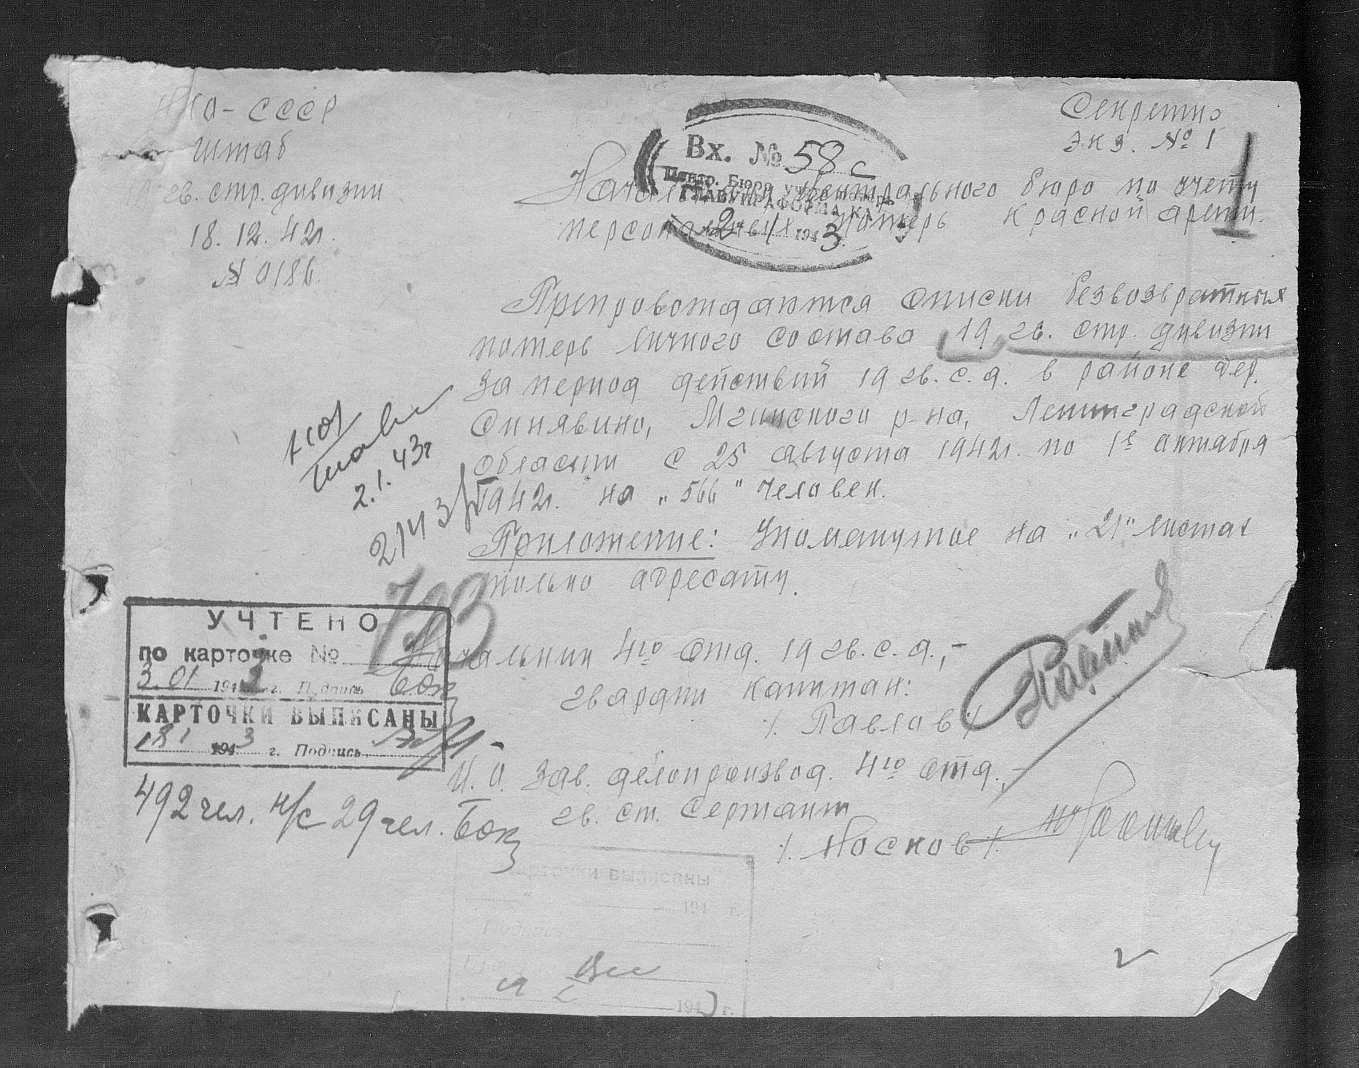 НКО-СССР
Штаб
19 гв. стр. дивизии
18.12.42г.
№ 0186.
Секретно
Экз. № 1
1
Вх. № 58с
Центр. Бюро учета потерь
ГЛАВУПРАФОРМА КА
2 1 1943
Начальнику Центрального бюро по учету
персональных потерь Красной армии.
Препровождаются списки безвозвратных
потерь личного состава 19 гв. стр. дивизии
за период действий 19 гв. с. д. в районе дер.
Синявино, Мгинского р-на, Ленинградской
области с 25 августа 1942г. по 1е октября
1942г. на „566" человек.
Приложение: Упомянутое на „21" листах
только адресату.
2.1.43г
Начальник 4го отд. 19 гв. с. д.,-
гвардии капитан:
/. Павлов /.
И. О. Зав. делопроизвод. 4го отд.,-
гв. ст. Сержант
/. Носков /.
УЧТЕНО
по карточке №
3.01 1943 г. Подпись
КАРТОЧКИ ВЫПИСАНЫ
18 1 1943 г. Подпись
492 чел. н/с 29 чел.
Карточки выписаны
194 г.
Подпись
194 г.